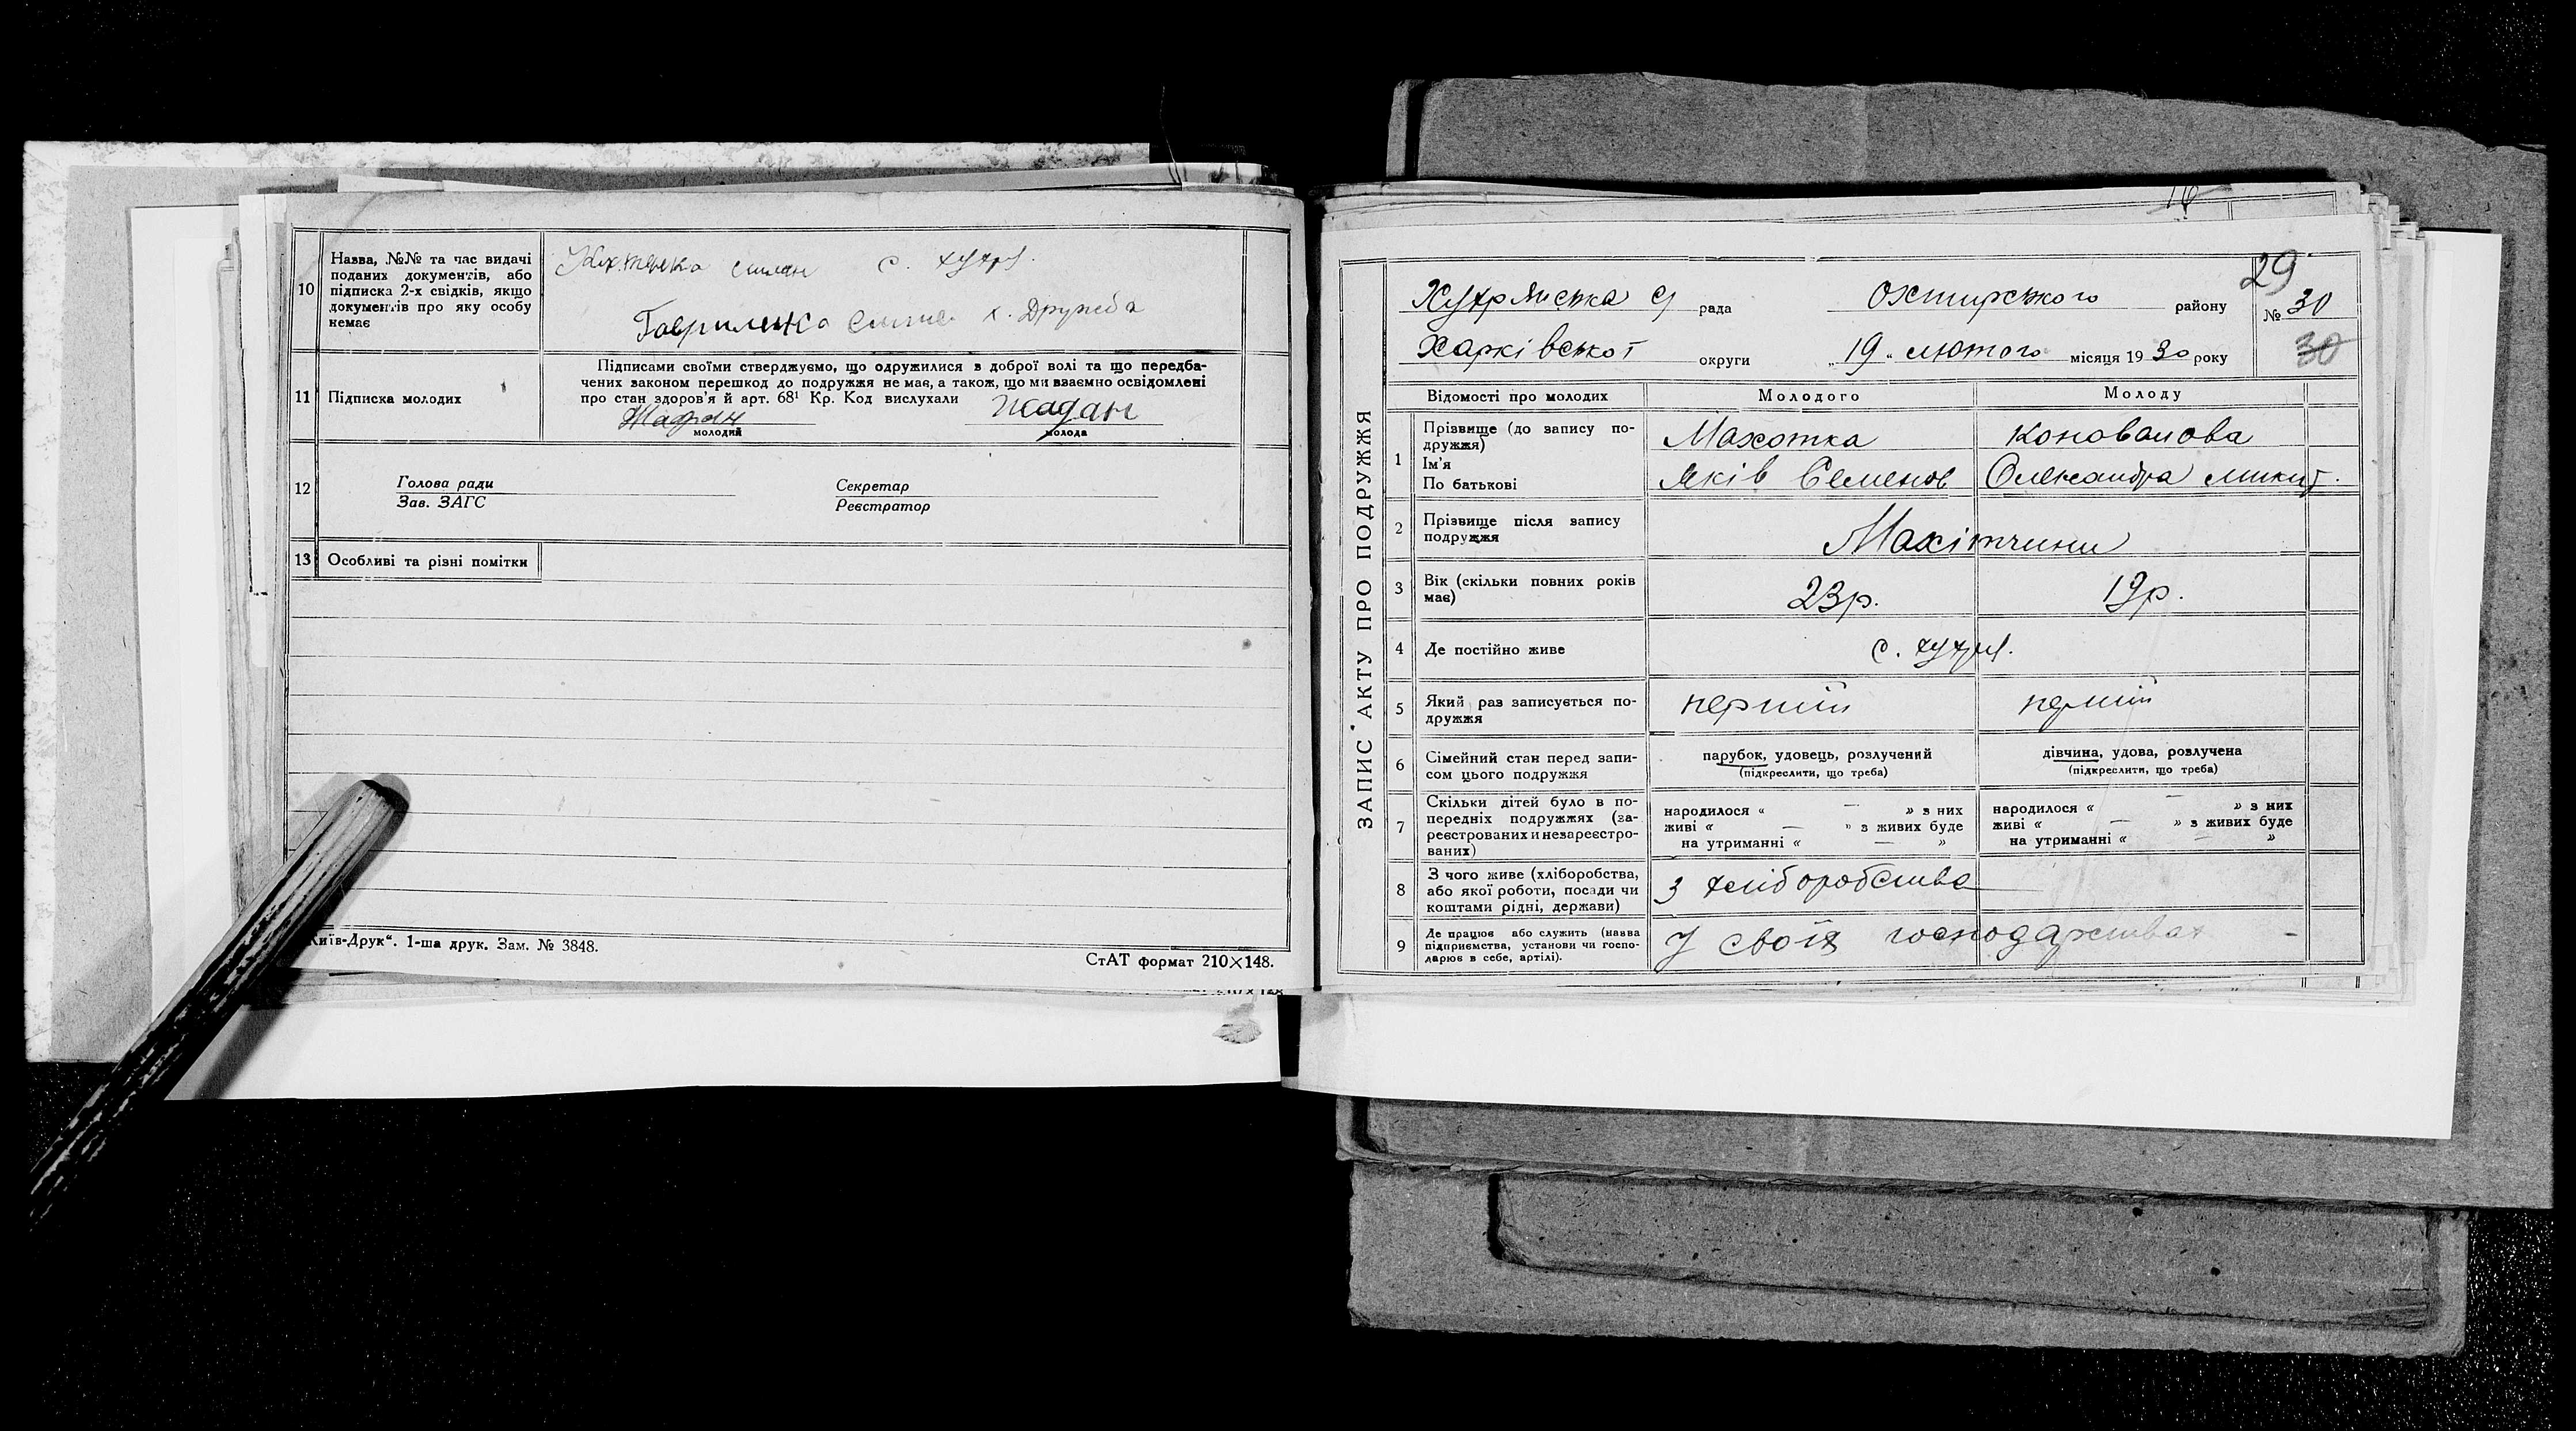 10
Назва, №№ та час видачі
поданих документів, або
підписка 2-х свідків, якщо
документів про яку особу
немає
с. хухря.
Гавриленко х. Дружба
11
Підписка молодих
Підписами своїми стверджуємо, що одружилися в доброї волі та що передба-
чених законом перешкод до подружжя не має, а також, що ми взаємно освідомлені
про стан здоров'я й арт. 68¹ Кр. Код вислухали
Жадан
Жадан
молодий
молода
12
Голова ради
Зав. ЗАГС
Секретар
Реєстратор
13
Особливі та різні помітки
Київ-Друк“. 1-ша друк. Зам. № 3848.
СтАТ формат 210×148.
ЗАПИС АКТУ ПРО ПОДРУЖЖЯ
Хухрянська с/ рада Охтирського району
29
№ 30
Харківської округи „19“ лютого місяця 1930 року
30
Відомості про молодих
Молодого
Молоду
1
Прізвище (до запису по-
дружжя)
Ім'я
По батькові
Махотка
Яків Семенов
Коновалова
Олександра Микит.
2
Прізвище після запису
подружжя
Махітчини
3
Вік (скільки повних років
має)
23р.
19р.
4
Де постійно живе
с. хухря.
5
Який раз записується по-
дружжя
перший
перший
6
Сімейний стан перед запи-
сом цього подружжя
парубок, удовець, розлучений
(підкреслити, що треба)
дівчина, удова, розлучена
(підкреслити, що треба)
7
Скільки дітей було в по-
передніх подружжях (за-
реєстрованих и незареєстро-
ваних)
народилося « — » з них
живі « — » з живих буде
на утриманні « — »
народилося « — » з них
живі « — » з живих буде
на утриманні « — »
8
З чого живе (хліборобства,
або якої роботи, посади чи
коштами рідні, держави)
З хліборобства
9
Де працює або служить (назва
підприємства, установи чи госпо-
дарює в себе, артілі).
У своїх господарствах -